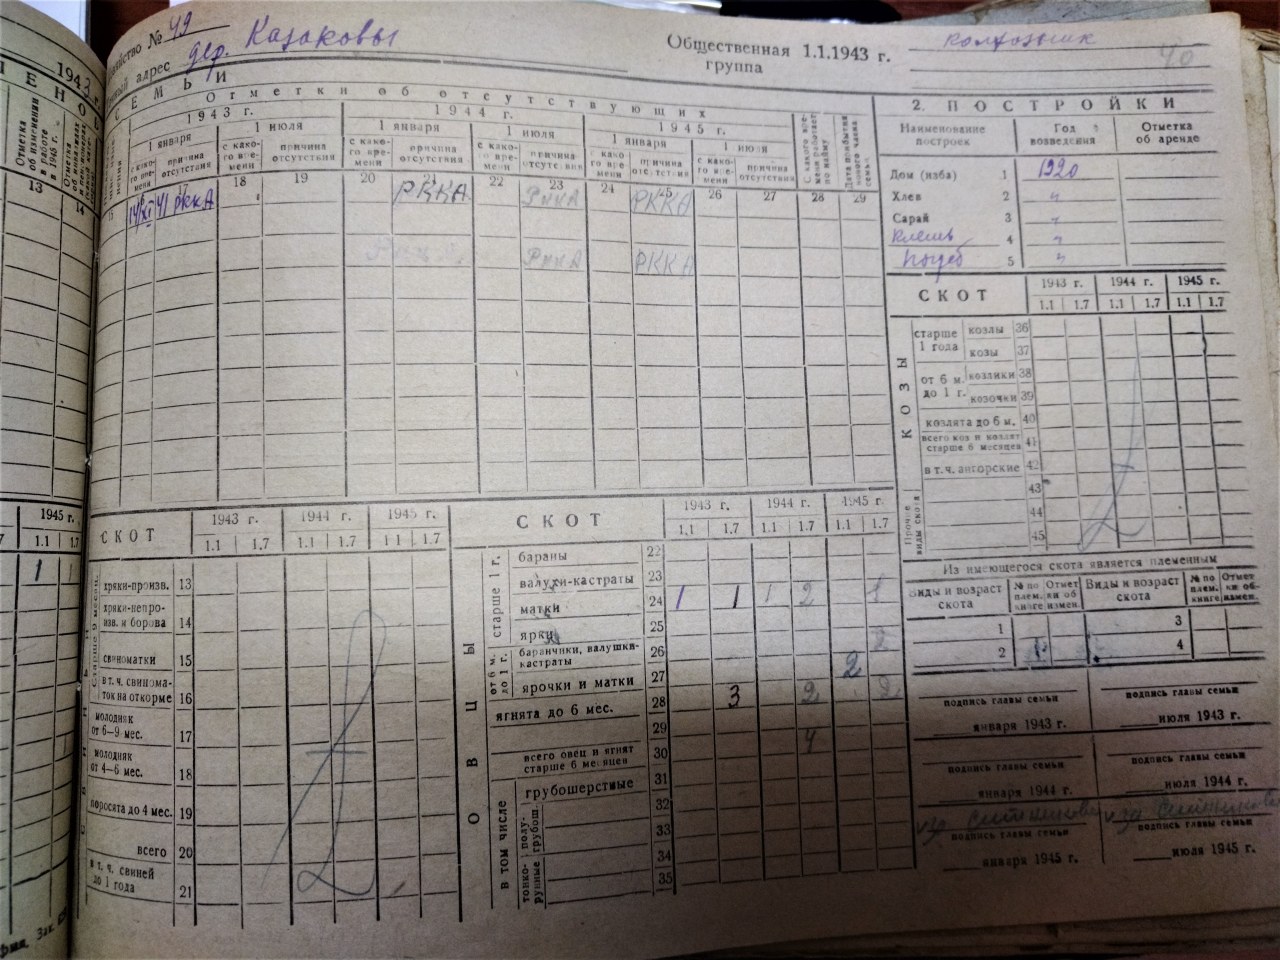 № 49
адрес дер. Казаковы
Общественная группа 1.1.1943 г. колхозник
40
СЕМЬИ
Отметки об отсутствующих
1943 г. 1944 г. 1945 г.
1 января 1 июля 1 января 1 июля 1 января 1 июля
с како- го вре- мени причина отсутствия
17 18 19 20 21 22 23 24 25 26 27 28 29
41 РККА РККА РККА РККА
РККА РККА
2. ПОСТРОЙКИ
Наименование построек Год возведения Отметка об аренде
Дом (изба) 1 1920
Хлев 2 "
Сарай 3 "
4 "
Погреб 5 "
СКОТ 1943 г. 1944 г. 1945 г.
1.1 1.7 1.1 1.7 1.1 1.7
КОЗЫ
старше 1 года козлы 36
козы 37
от 6 м. до 1 г. козлики 38
козочки 39
козлята до 6 м. 40
всего коз и козлят старше 6 месяцев 41
в т. ч. ангорские 42
Прочие виды скота 43
44
45
Из имеющегося скота является племенным
Виды и возраст скота № по плем. книге Отмет- ки об измен. Виды и возраст скота № по плем. книге Отмет- ки об измен.
1 3
2 4
подпись главы семьи подпись главы семьи
января 1943 г. июля 1943 г.
подпись главы семьи подпись главы семьи
января 1944 г. июля 1944 г.
подпись главы семьи подпись главы семьи
января 1945 г. июля 1945 г.
1943 г.
Отметка об изменении в работе в 1945 г.
13 14
1945 г.
1.1 1.7
1 1
СКОТ 1943 г. 1944 г. 1945 г.
1.1 1.7 1.1 1.7 1.1 1.7
хряки-произв. 13
хряки-непро- изв. и борова 14
свиноматки 15
в т. ч. свинома- ток на откорме 16
молодняк от 6—9 мес. 17
молодняк от 4—6 мес. 18
поросята до 4 мес. 19
всего 20
в т. ч. свиней до 1 года 21
ОВЦЫ
СКОТ 1943 г. 1944 г. 1945 г.
1.1 1.7 1.1 1.7 1.1 1.7
старше 1 г.
бараны 22
валухи-кастраты 23
матки 24 1 1 1 2 1
ярки 25
от 6 м. до 1 г.
баранчики, валушки- кастраты 26 2
ярочки и матки 27 2
ягнята до 6 мес. 28 3 2 2
29
всего овец и ягнят старше 6 месяцев 30 4
в том числе
грубошерстные 31
полу- грубош. 32
33
тонко- рунные 34
35